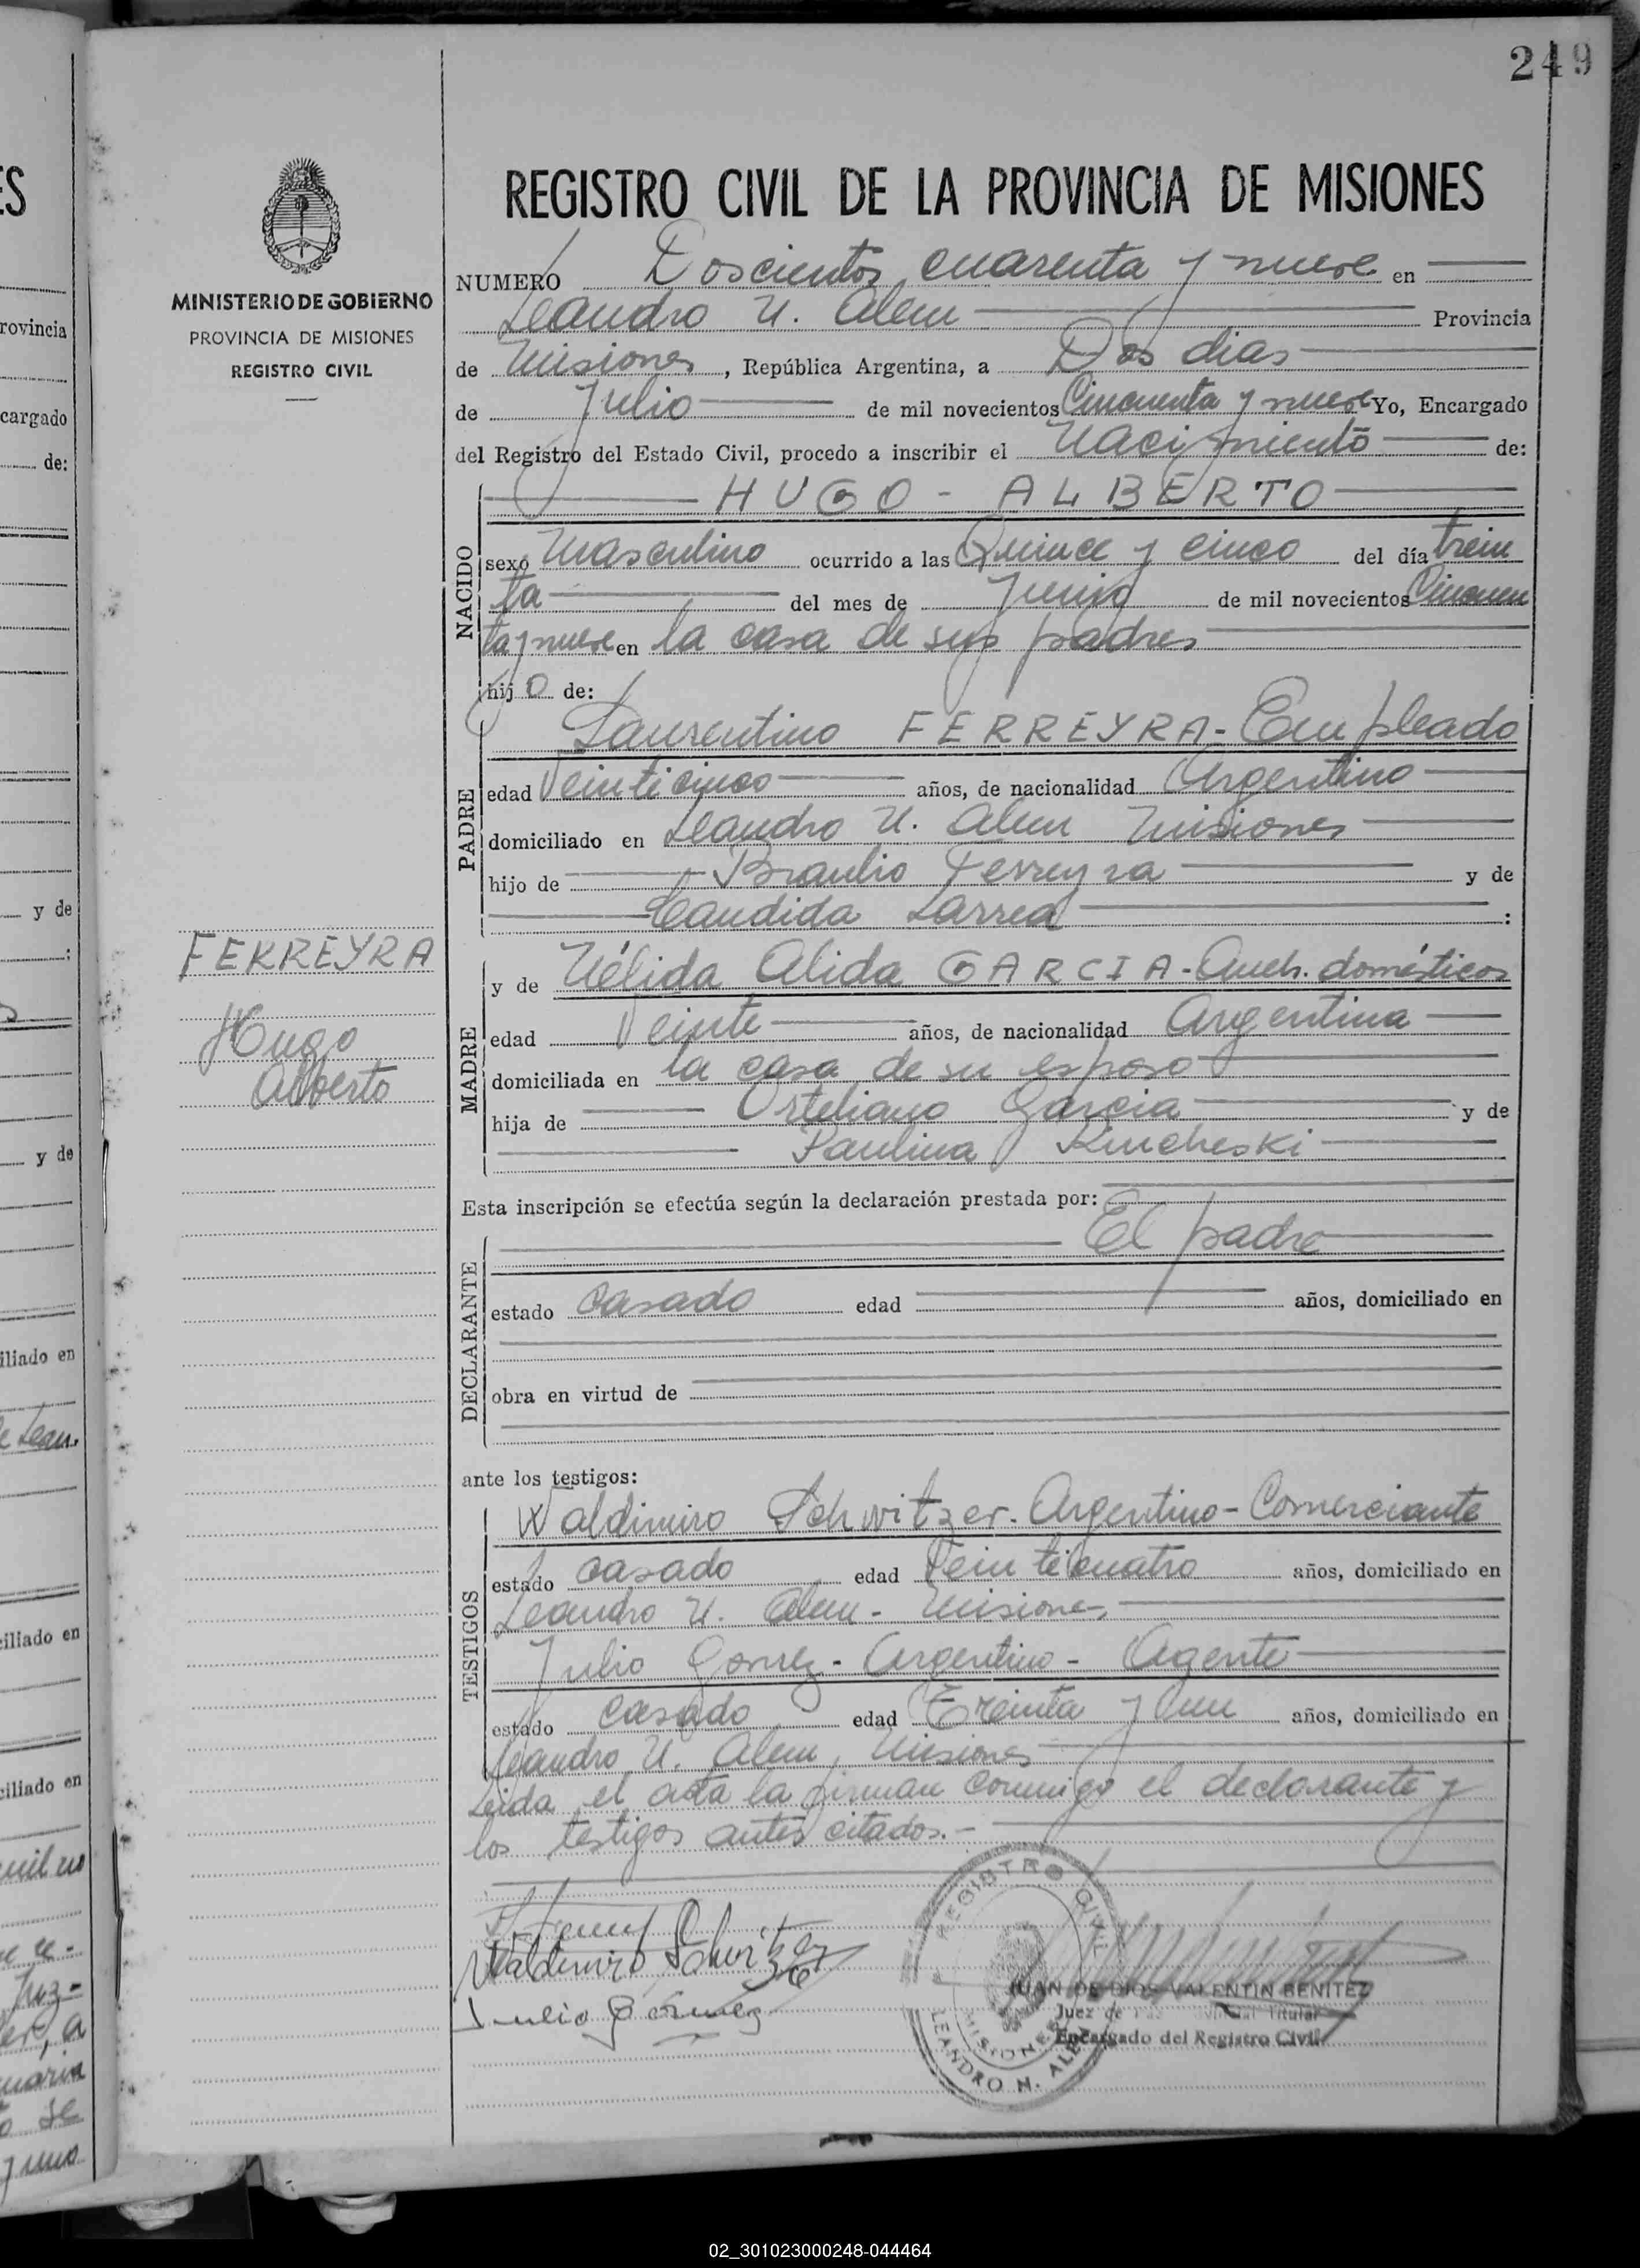 249
ES
rovincia
cargado
de:
y de
y de
iliado en
iliado en
iliado en
MINISTERIO DE GOBIERNO
PROVINCIA DE MISIONES
REGISTRO CIVIL
FERREYRA
Hugo
Alberto
REGISTRO CIVIL DE LA PROVINCIA DE MISIONES
NUMERO Doscientos cuarenta y nueve en
Leandro N. Alem Provincia
de Misiones, República Argentina, a Dos dias
de Julio de mil novecientos Cincuenta y nueve Yo, Encargado
del Registro del Estado Civil, procedo a inscribir el Nacimiento de:
NACIDO
HUGO - ALBERTO
sexo Masculino ocurrido a las Quince y cinco del día trein
ta del mes de Junio de mil novecientos Cincuen
ta y nueve en la casa de sus padres
hijo de:
PADRE
Laurentino FERREYRA - Empleado
edad Veinticinco años, de nacionalidad Argentino
domiciliado en Leandro N. Alem Misiones
hijo de Braulio Ferreyra y de
Candida Larrea :
MADRE
y de Nélida Alida GARCIA - Queh. domésticos
edad Veinte años, de nacionalidad Argentina
domiciliada en la casa de su esposo
hija de Orteliano Garcia y de
Paulina Kincheski
Esta inscripción se efectúa según la declaración prestada por:
DECLARANTE
El padre
estado casado edad años, domiciliado en
obra en virtud de
ante los testigos:
TESTIGOS
Waldimiro Schwitzer - Argentino - Comerciante
estado casado edad Veinticuatro años, domiciliado en
Leandro N. Alem - Misiones
Julio Gomez - Argentino - Agente
estado casado edad Treinta y un años, domiciliado en
Leandro N. Alem, Misiones
Leida el acta la firman conmigo el declarante y
los testigos antes citados.-
Waldimiro Schwitzer
Julio Gómez
REGISTRO CIVIL
MISIONES
LEANDRO N. ALEM
JUAN DE DIOS VALENTIN BENITEZ
Juez de Titular
Encargado del Registro Civil
02_301023000248-044464